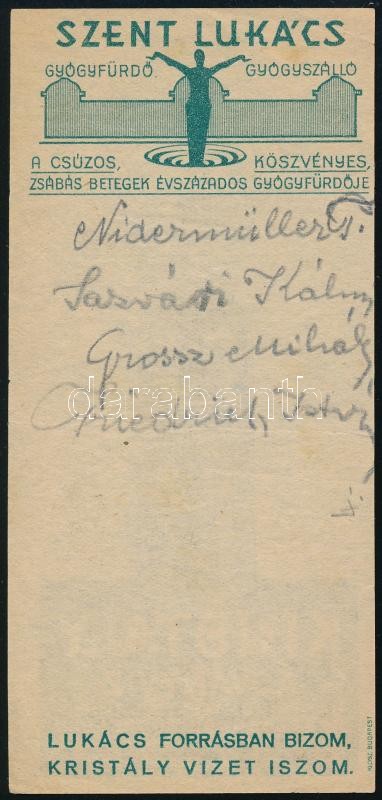 SZENT LUKÁCS
GYÓGYFÜRDŐ. GYÓGYSZÁLLÓ
A CSÚZOS, KÖSZVÉNYES,
ZSÁBÁS BETEGEK ÉVSZÁZADOS GYÓGYFÜRDŐJE
Nidermüller
Kálm
Grossz Mihály
darabanth
Friedrich Istv
LUKÁCS FORRÁSBAN BIZOM,
KRISTÁLY VIZET ISZOM.
KLÖSZ, BUDAPEST